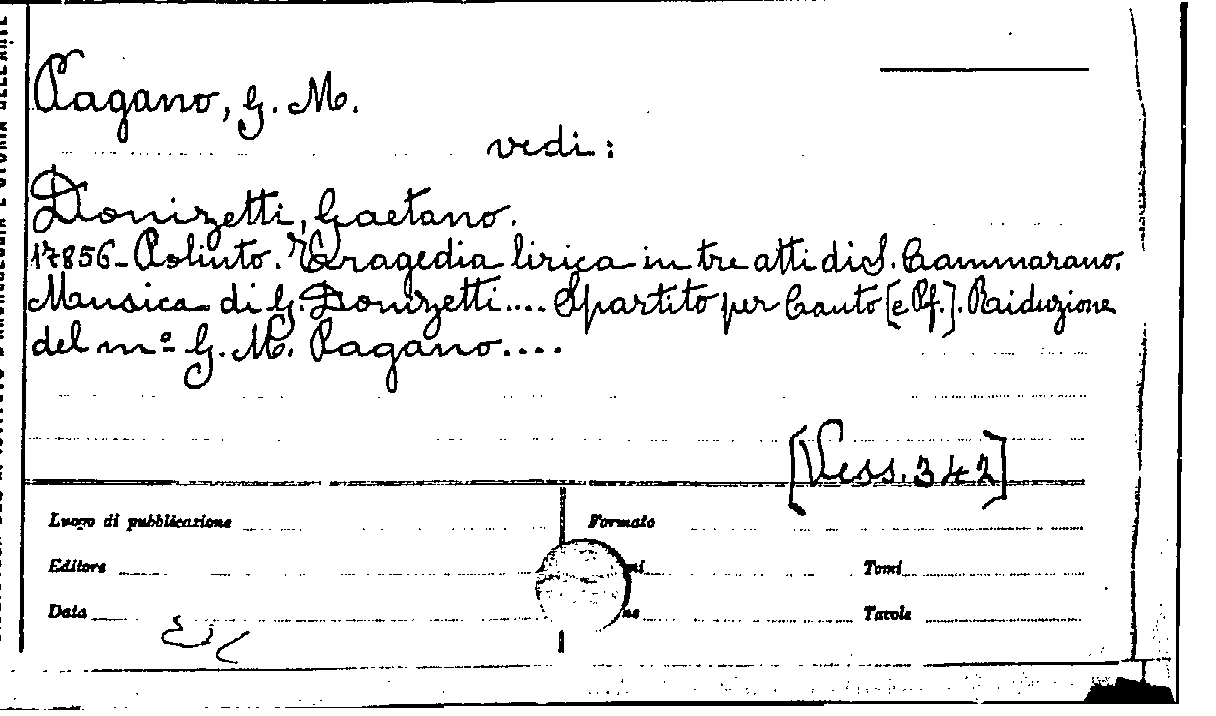 Pagano, G. M.
vedi:
Donizetti, Gaetano.
17856 - Poliuto. Tragedia lirica in tre atti di S. Cammarano.
Musica di G. Donizetti.... Spartito per Canto [e Pf.]. Raiduzione
del mº G. M. Pagano....
[Vess. 342]
Luogo di pubblicazione
Formato
Editore
Tomi
Data
Tavole